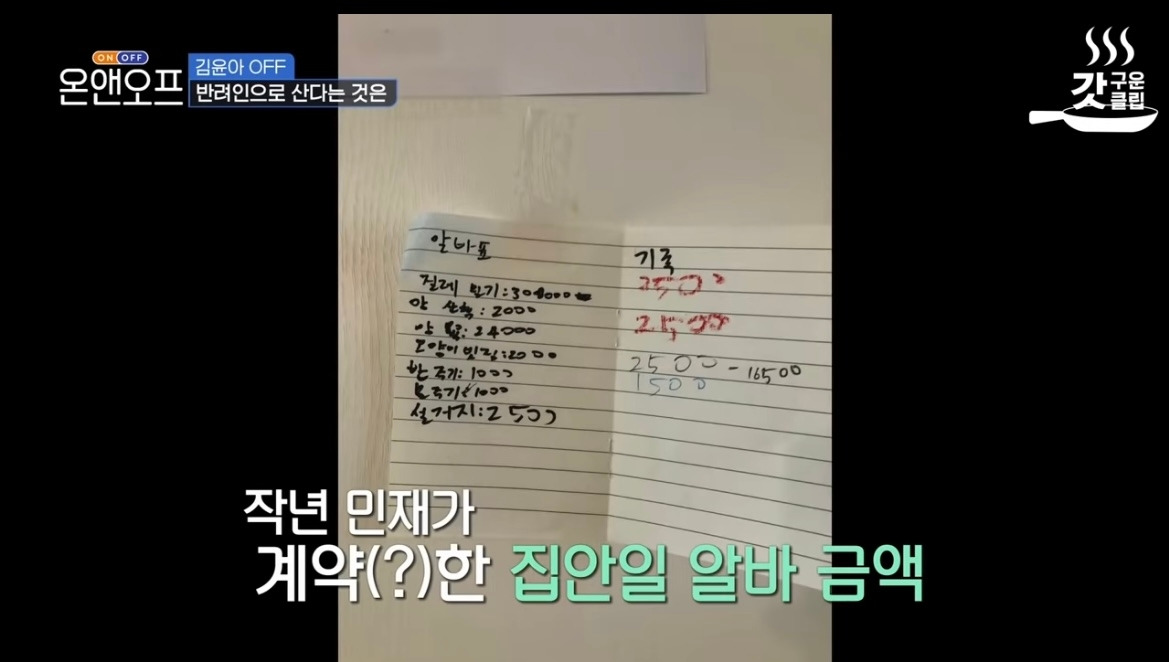 ON OFF
온앤오프
김윤아 OFF
반려인으로 산다는 것은
갓구운
클립
알바표
걸레 빨기:
산책: 2000
고양이 빗질:2000
밥 주기:1000
물주기:1000
설거지:2500
기록
2500
2500
2500 - 16500
1500
작년 민재가
계약(?)한 집안일 알바 금액